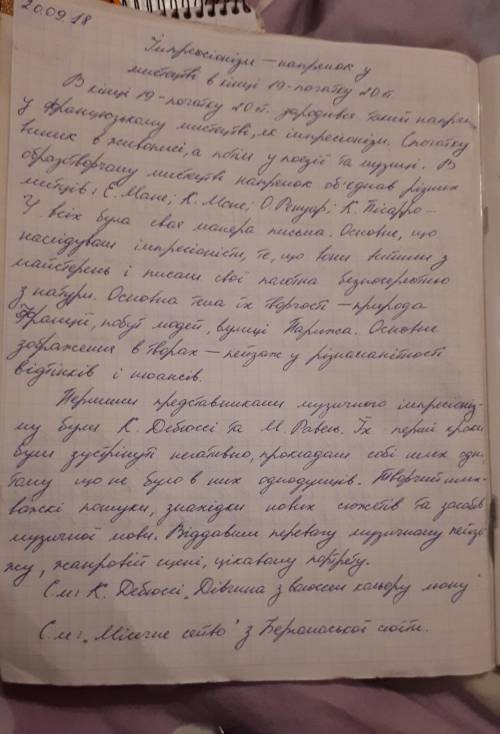 20.09.18
Імпресіонізм – напрямок у
мистецтві в кінці 19-початку 20 ст.
В кінці 19-початку 20 ст. зародився такий напрям
у французькому мистецтві, як імпресіонізм. Спочатку
виник в живописі, а потім у поезії та музиці. В
образотворчому мистецтві напрямок об'єднав різних
митців: Е. Мане; К. Моне; О. Ренуар; К. Піссарро –
У всіх була своя манера письма. Основне, що
наслідували імпресіоністи, те, що вони вийшли з
майстерень і писали свої полотна безпосередньо
з натури. Основна тема їх творчості – природа
Франції, побут людей, вулиці Парижа. Основне
зображення в творах – пейзаж у різноманітності
відтінків і нюансів.
Першими представниками музичного імпресіоніз-
му були К. Дебюссі та М. Равель. Їх перші кроки
були зустрінуті негативно, прокладали собі шлях одні,
тому що не було в них однодумців. Творчий шлях-
важкі пошуки, знахідки нових сюжетів та засобів
музичної мови. Віддавши перевагу музичному пейза
жу, жанровій сцені, цікавому портрету.
См: К. Дебюссі „Дівчина з волоссям кольору льону"
См: „Місячне сяйво" з Бергамаської сюїти.